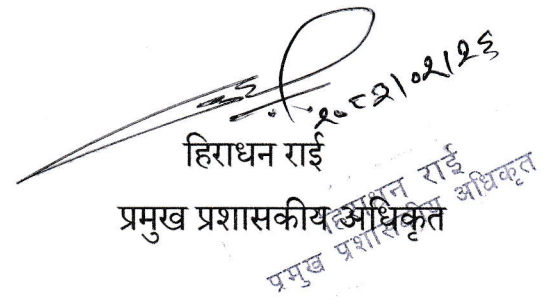 २०८२।०२।२६
हिराधन राई
प्रमुख प्रशासकीय अधिकृत
हिराधन राई
प्रमुख प्रशासकीय अधिकृत